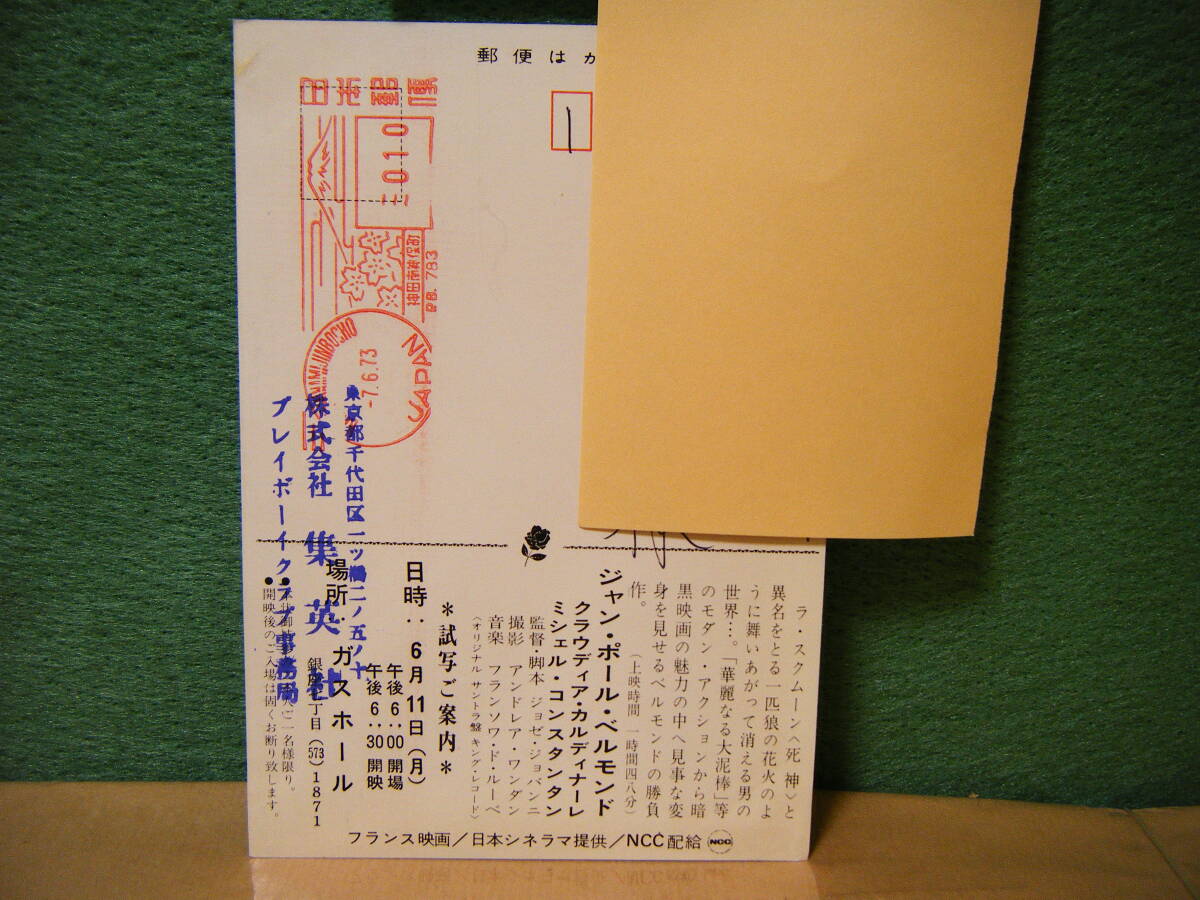 郵便はが
日本郵便
010
神田南神保町
P.B. 783
NAMIJIMBOCHO
-7.6.73
JAPAN
東京都千代田区一ツ橋二ノ五ノ十
株式会社 集英社
プレイボーイクラブ事務局
ラ・スクムーン〈死神〉と
異名をとる一匹狼の花火のよ
うに舞いあがって消える男の
世界…。「華麗なる大泥棒」等
のモダン・アクションから暗
黒映画の魅力の中へ見事な変
身を見せるベルモンドの勝負
作。
(上映時間 一時間四八分)
ジャン・ポール・ベルモンド
クラウディア・カルディナーレ
ミシェル・コンスタンタン
監督・脚本 ジョゼ・ジョバンニ
撮影 アンドレア・ワンダン
音楽 フランソワ・ド・ルーベ
〈オリジナルサントラ盤 キング・レコード〉
*試写ご案内*
日時: 6月11日(月)
午後6:00 開場
午後6:30 開映
場所: ガスホール
丁目 (573) 1871
ご一名様限り。
●開映後のご入場は固くお断り致します。
フランス映画/日本シネラマ提供/NCC配給 NCC